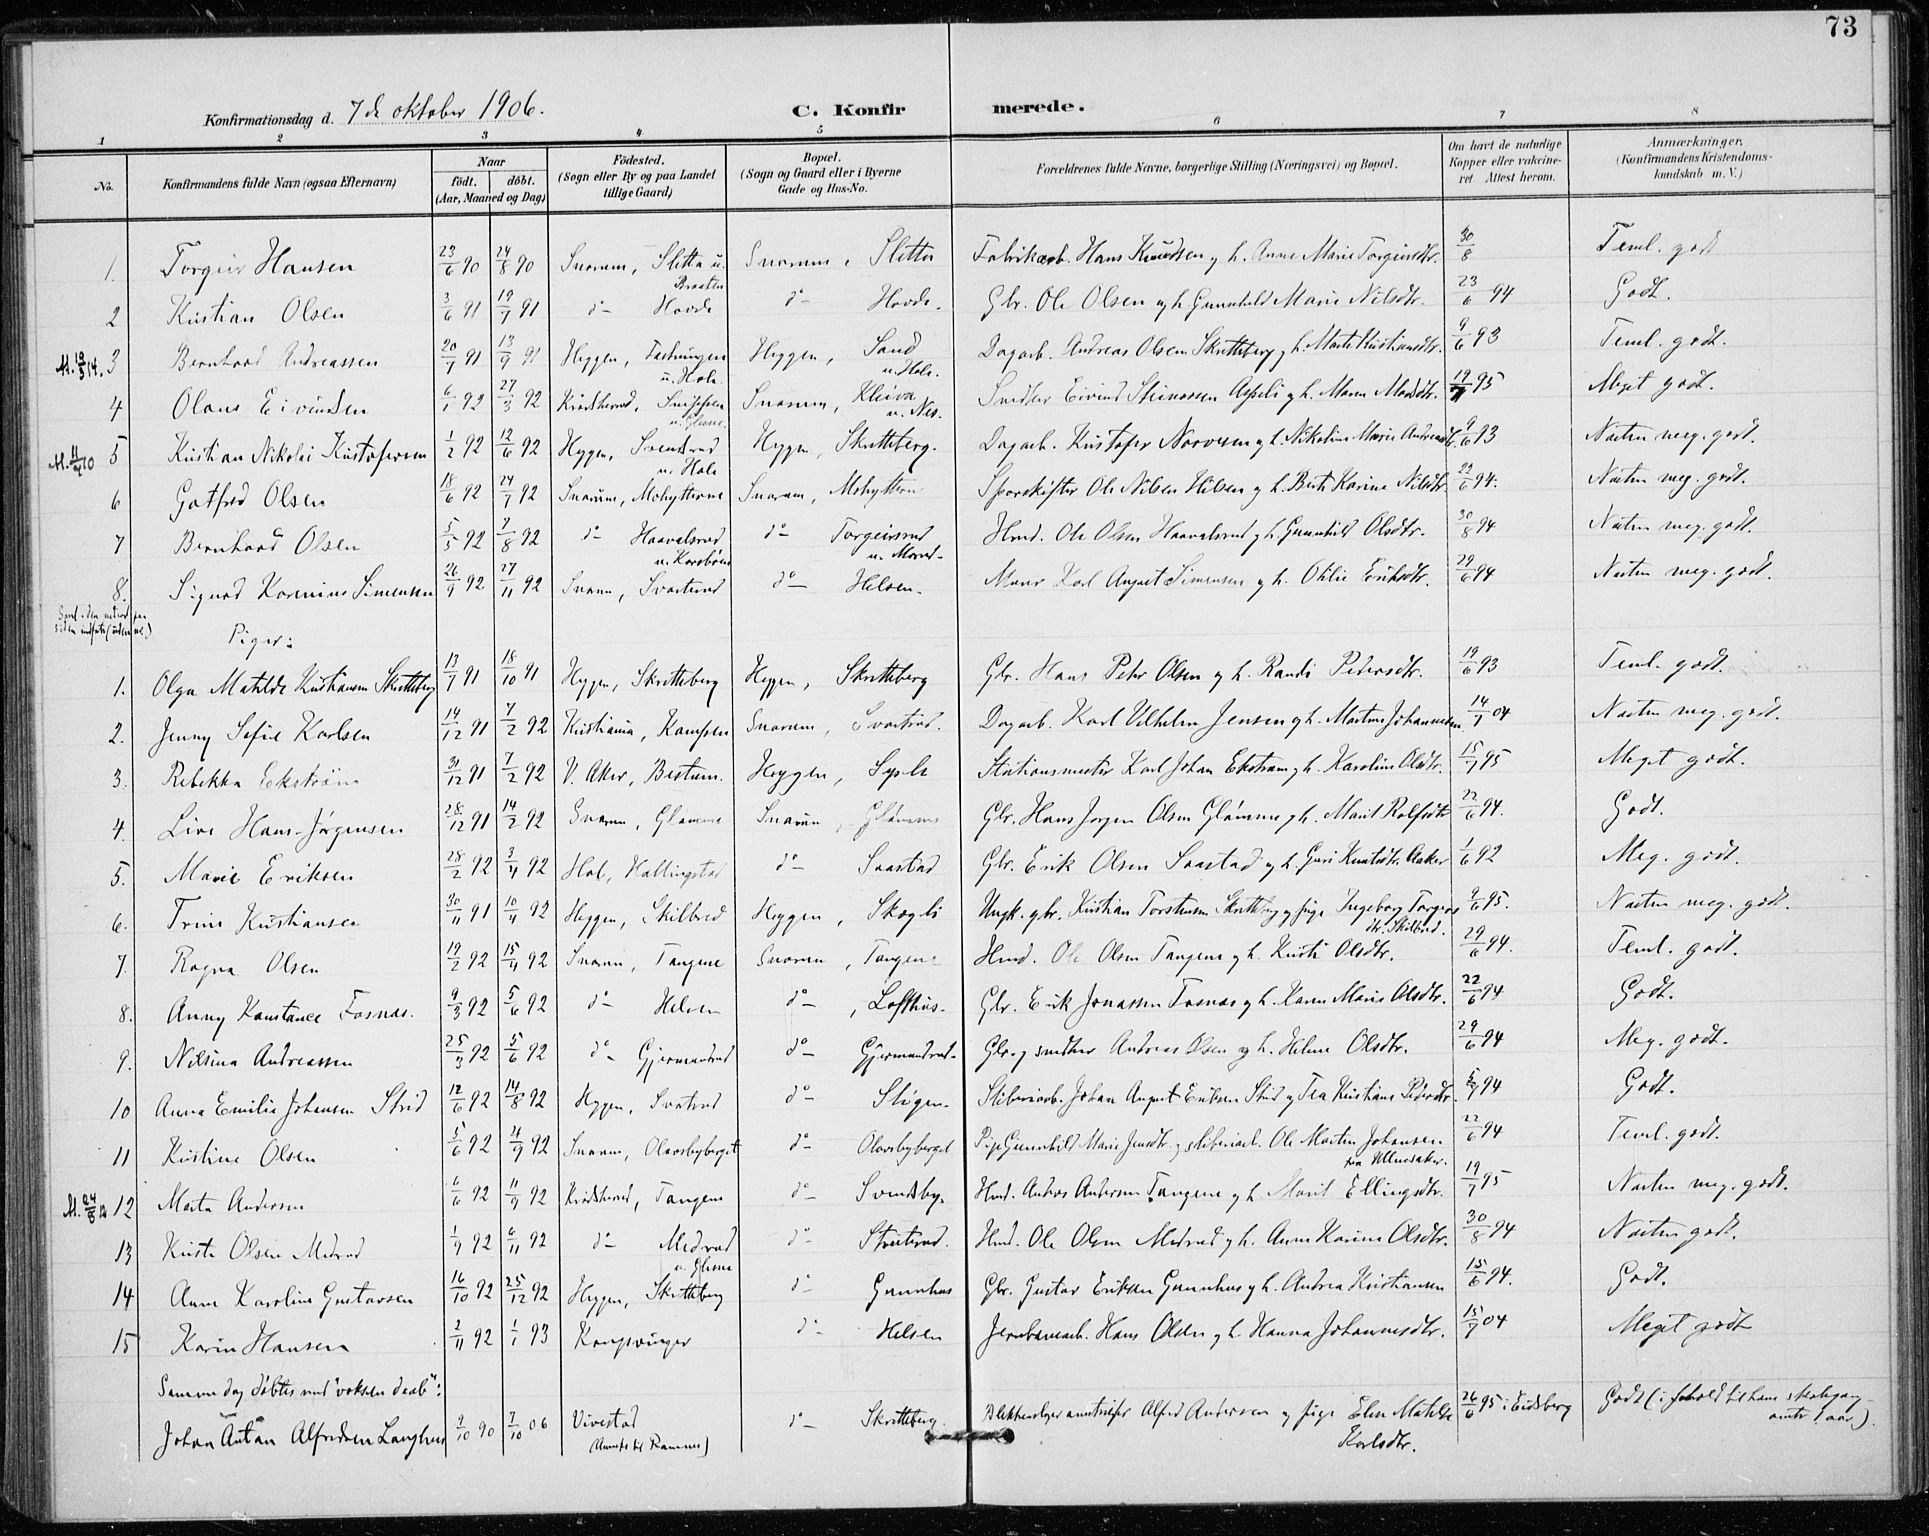 73
Konfirmationsdag d. 7de oktober 1906. C. Konfirmerede.
1 2 3 4 5 6 7 8
No. Konfirmandens fulde Navn (ogsaa Efternavn) Naar födt. döbt. (Aar, Maaned og Dag) Födested. (Sogn eller By og paa Landet tillige Gaard) Bopæl. (Sogn og Gaard eller i Byerne Gade og Hus-No. Forældrenes fulde Navne, borgerlige Stilling (Næringsvei) og Bopæl. Om havt de naturlige Kopper eller vakcineret. Attest herom. Anmærkninger. (Konfirmandens Kristendomskundskab m. V.)
1. Torgeir Hansen 23/6 90 24/8 90 Snarum, Sletta u. Braaten Snarum, Sletta Fabrikarb. Hans Knudsen og h. Anne Marie Torgirsdtr. 30/8 Teml. godt
2 Kristian Olsen 3/6 91 19/7 91 do Hovde do Hovde. Gbr. Ole Olsen og h. Gunnhild Marie Nilsdtr. 23/6 94 Godt.
3 Bernhard Andreassen 20/7 91 13/9 91 Heggen, u. Hole. Heggen, Sand u. Hole. Dagarb. Andreas Olsen Skretteberg og h. Marte Kristiansdtr. 9/6 93 Teml. godt.
4 Olaus Eivindsen 6/1 92 27/3 92 Krødsherred, u. Glesne. Snarum, Kleiva u. Nes. Snedker Eivind Steinarsen og h. Maren Madsdtr. 19/7 95 Meget godt.
M. 11/4 10 5 Kristian Nikolai Kristofersen 1/2 92 12/6 92 Heggen, Svendsrud u. Hole Heggen, Skretteberg. Dagarb. Kristofer Norvum og h. Nikoline Marie 9/6 93 Næsten meg. godt.
6 Gotfred Olsen 18/6 92 24/7 92 Snarum, Mohytterne Snarum, Mohyttern Sporskifter Ole Nilsen Hilsen og h. Berte Karine Nilsdtr. 22/6 94. Næsten meg. godt.
7 Bernhard Olsen 5/5 92 7/8 92 do Haavalsrud do Torgeirsrud Hmd. Ole Olsen Haavalsrud og h. Gunnhild Olsdtr. 30/8 94 Næsten meg. godt.
8. Sigurd Korenius Simensen 26/9 92 27/11 92 Snarum, Svartsrud do Helsen. Murer Karl August Simensen og h. Othilie Eriksdtr. 29/6 94 Næsten meg. godt.
Piger:
1. Olga Matilde Kristiansen Skretteberg 13/7 91 18/10 91 Heggen, Skretteberg Heggen, Skretteberg Gbr. Hans Peter Olsen og h. Randi Pedersdtr. 19/6 93 Teml. godt.
2. Jenny Sofie Karlsen 14/12 91 7/2 92 Kristiania, Kampen Snarum, Svartsrud. Dagarb. Karl Vilhelm Jensen og h. Martine Johannesen 14/7 04 Næsten meg. godt.
3. Rebekka Eckstrøm 31/12 91 7/2 92 V. Aker, Bestum. Heggen, Sysle Stationsmester Karl Johan Ekstrøm og h. Karoline Olsdtr. 15/7 95 Meget godt.
4. Live Hans-Jørgensen 28/12 91 14/2 92 Snarum, Glamme Snarum, Glamme Gbr. Hans Jørgen Olsen Glamme og h. Marit Rolfsdtr 22/6 94. Godt.
5. Marie Eriksen 28/2 92 3/4 92 Hol, Hallingdal do Saastad Gbr. Erik Olsen Saastad og h. Guri Knutsdtr. Aaker 1/6 92 Meg. godt.
6. Trine Kristiansen 30/11 91 10/4 92 Heggen, Skilbred Heggen, Skogli Ungk. gbr. Kristian Torstensen Skretteberg og pige Ingeborg Torgersdtr. Skilbred. 9/6 95. Næsten meg. godt.
7. Ragna Olsen 19/2 92 15/4 92 Snarum, Tangene Snarum, Tangene Hmd. Ole Olsen Tangene og h. Kristi Olsdtr. 29/6 94. Teml. godt.
8. Anny Konstance Fosnæs. 9/3 92 5/6 92 do Helsen do, Lofthus. Gbr. Erik Jonassen Fosnæs og h. Karen Marie Olsdtr. 22/6 94 Godt.
9. Nilsina Andreassen 25/3 92 5/6 92 do Gjermundrud do Gjermundrud. Gbr. og snedker Andreas Olsen og h. Helene Olsdtr. 29/6 94 Meg. godt.
10 Anna Emilie Johansen Strid 12/6 92 14/8 92 Heggen, Svartsrud do Stigen. Sliberiarb. Johan August Eriksen Strid og Tea Kristiane Pedersdtr. 5/7 94 Godt.
11 Kristine Olsen 5/6 92 4/9 92 Snarum, Olavsbyberget do Olavsbyberget Pige Gunnhild Marie Jensdtr. og sliberiarb. Ole Martin Johansen fra Ullensaker. 22/6 94 Teml. godt.
M. 24/8 12 12 Marta Andersen 6/6 92 11/9 92 Krødsherred, Tangene do Svendsby. Hmd. Anders Andersen Tangene og h. Marit Ellingsdtr. 19/7 95 Næsten meg. godt.
13 Kristi Olsen Medrud 1/9 92 6/11 92 do Medrud u. Glesne do Hmd. Ole Olsen Medrud og h. Anne Karine Olsdtr. 30/8 94 Næsten godt.
14 Anna Karoline Gustavsen 16/10 92 25/12 92 Heggen, Skretteberg do Gunnhus Gbr. Gustav Eriksen Gunnhus og h. Andrea Kristiansen 15/6 94. Godt.
15 Karin Hansen 2/11 92 1/1 93 Kongsvinger do Helsen Jernbanearb. Hans Olsen og h. Hanna Johannesdtr. 15/7 04 Meget godt
Samme dag døbtes med "voksen daab":
Johan Anton Alfredsen Langhus 9/10 90 7/10 06 Vivestad (Anneks til Ramnes) do Skretteberg. Alfred Andersen og pige Elen Matilde Karlsdtr. 26/6 95 i Eidsberg Godt (i forhold til hans skolegang – omtr. 1 aar).